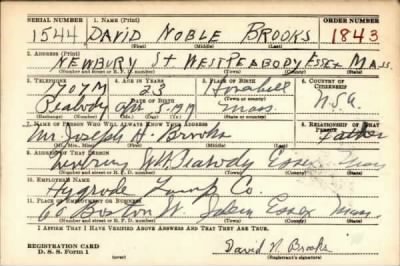 SERIAL NUMBER 1. NAME (Print) ORDER NUMBER
1544 DAVID NOBLE BROOKS 1843
(First) (Middle) (Last)
2. ADDRESS (Print)
NEWBURY St WEST PEABODY ESSEX MASS.
(Number and street or R. F. D. number) (Town) (County) (State)
3. TELEPHONE 4. AGE IN YEARS 5. PLACE OF BIRTH 6. COUNTRY OF CITIZENSHIP
1704M 23
DATE OF BIRTH (Town or county)
Peabody 5 1917 Mass. U.S.A.
(Exchange) (Number) (Mo.) (Day) (Yr.) (State or country)
7. NAME OF PERSON WHO WILL ALWAYS KNOW YOUR ADDRESS 8. RELATIONSHIP OF THAT PERSON
Mr. Joseph H. Brooks Father
(Mr., Mrs., Miss) (First) (Middle) (Last)
9. ADDRESS OF THAT PERSON
Newbury W. Peabody Essex Mass
(Number and street or R. F. D. number) (Town) (County) (State)
10. EMPLOYER'S NAME
Hygrade Lamp Co.
11. PLACE OF EMPLOYMENT OR BUSINESS
Boston St. Salem Essex Mass.
(Number and street or R. F. D. number) (Town) (County) (State)
I AFFIRM THAT I HAVE VERIFIED ABOVE ANSWERS AND THAT THEY ARE TRUE.
REGISTRATION CARD
D. S. S. Form 1 David N. Brooks
(Registrant's signature)